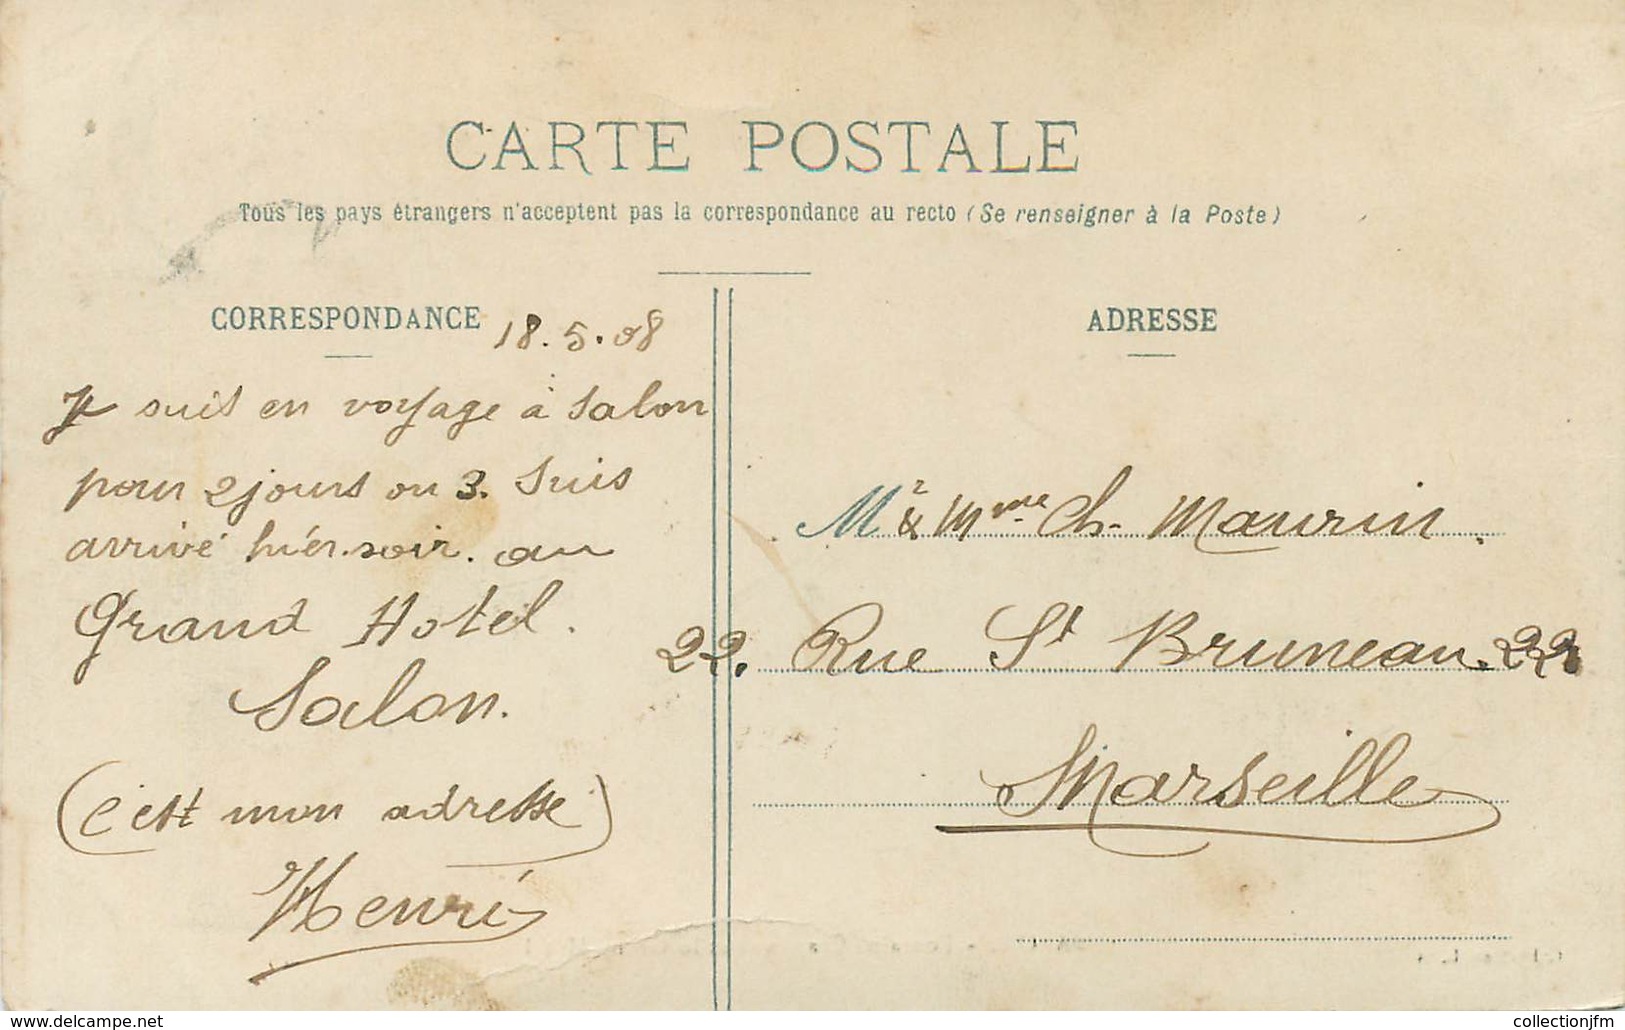 CARTE POSTALE
Tous les pays étrangers n'acceptent pas la correspondance au recto (Se renseigner à la Poste)
CORRESPONDANCE 18.5.08
Je suis en voyage à Salon
pour 2 jours ou 3. Suis
arrivé hier soir. au
Grand Hotel.
Salon.
(c'est mon adresse)
Henri
ADRESSE
Mr & Mme Ch. Maurin.
22. Rue St Bruneau. 22
Marseille
www.delcampe.net
collectionjfm